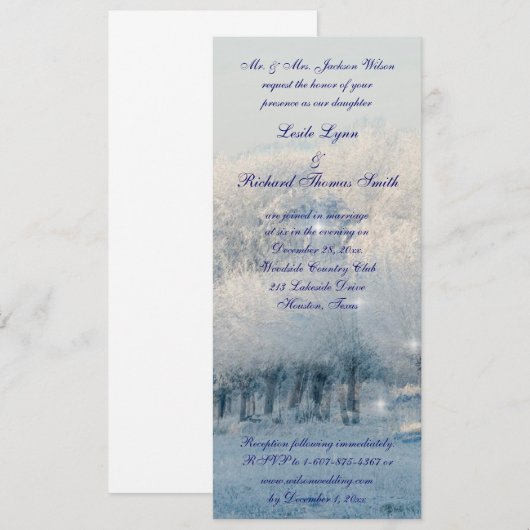 Mr. & Mrs. Jackson Wilson
request the honor of your
presence as our daughter
Lesile Lynn
&
Richard Thomas Smith
are joined in marriage
at six in the evening on
December 28, 20xx.
Woodside Country Club
213 Lakeside Drive
Houston, Texas
Reception following immediately.
RSVP to 1-607-875-4367 or
www.wilsonwedding.com
by December 1, 20xx